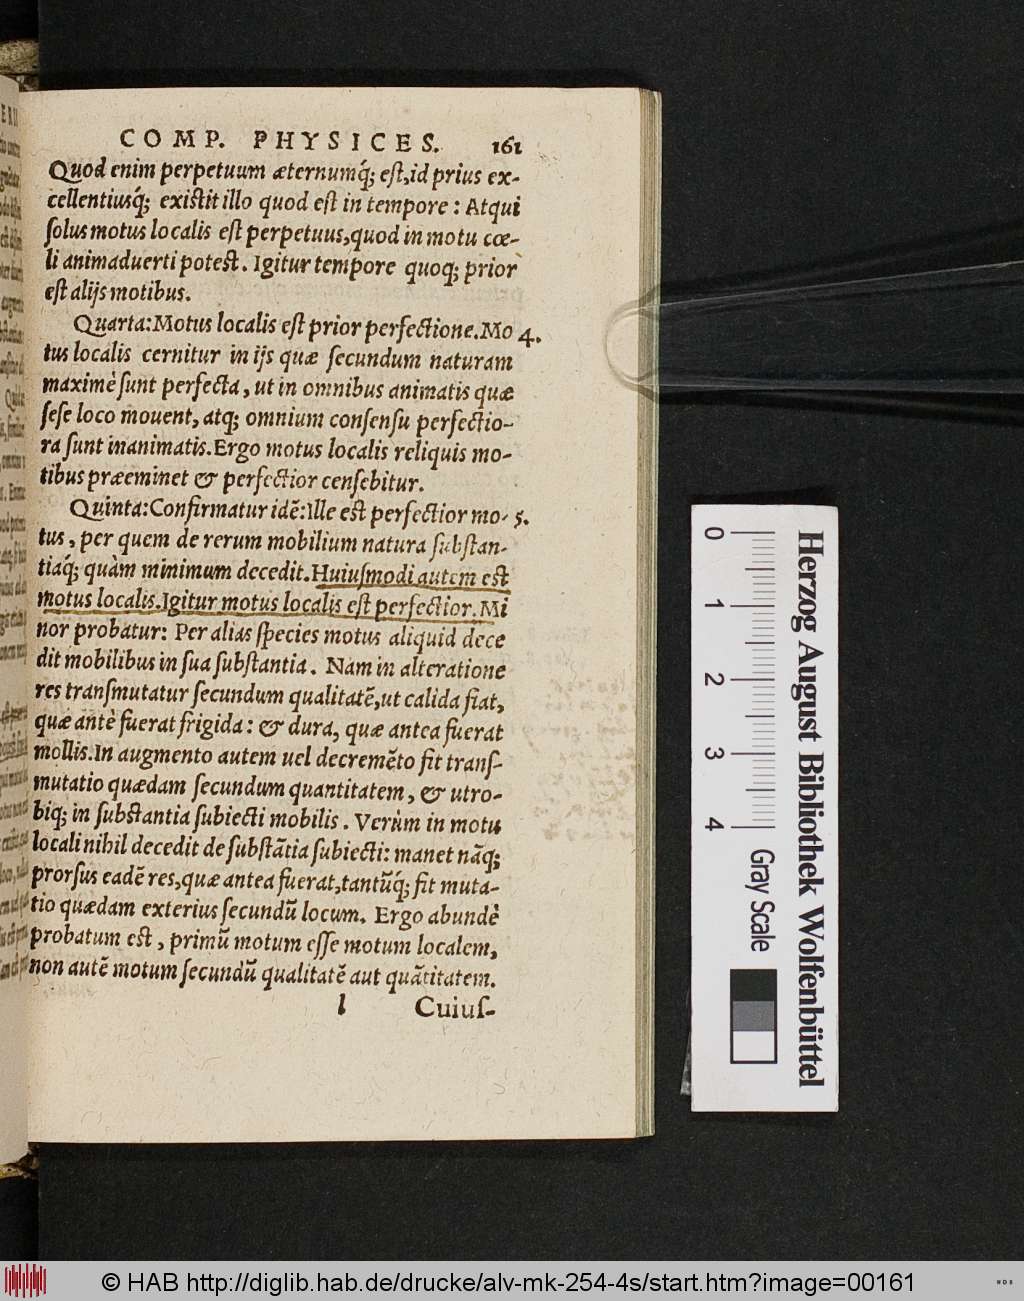 COMP. PHYSICES. 161
Quod enim perpetuum æternumq́; eſt, id prius ex-
cellentiusq́; existit illo quod eſt in tempore : Atqui
ſolus motus localis eſt perpetuus, quod in motu cœ-
li animaduerti potest. Igitur tempore quoq; prior
eſt alijs motibus.
Quarta: Motus localis eſt prior perfectione. Mo 4.
tus localis cernitur in ijs quæ ſecundum naturam
maximè ſunt perfecta, ut in omnibus animatis quæ
ſeſe loco mouent, atq; omnium conſenſu perfectio-
ra ſunt inanimatis. Ergo motus localis reliquis mo-
tibus præeminet & perfectior cenſebitur.
Quinta: Confirmatur idē: Ille est perfectior mo- 5.
tus, per quem de rerum mobilium natura ſubſtan-
tiaq́; quàm minimum decedit. Huiuſmodi autem est
motus localis. Igitur motus localis eſt perfectior. Mi
nor probatur: Per alias ſpecies motus aliquid dece
dit mobilibus in ſua ſubſtantia. Nam in alteratione
res tranſmutatur ſecundum qualitatē, ut calida fiat,
quæ antè fuerat frigida: & dura, quæ antea fuerat
mollis. In augmento autem uel decremēto fit tranſ-
mutatio quædam ſecundum quantitatem, & utro-
biq; in ſubstantia ſubiecti mobilis. Verùm in motu
locali nihil decedit de ſubſtātia ſubiecti: manet nāq;
prorſus eadē res, quæ antea fuerat, tantūq́; fit muta-
tio quædam exterius ſecundū locum. Ergo abundè
probatum est, primū motum eſſe motum localem,
non autē motum ſecundū qualitatē aut quātitatem.
l Cuiuſ-
Herzog August Bibliothek Wolfenbüttel
0 1 2 3 4
Gray Scale
© HAB http://diglib.hab.de/drucke/alv-mk-254-4s/start.htm?image=00161